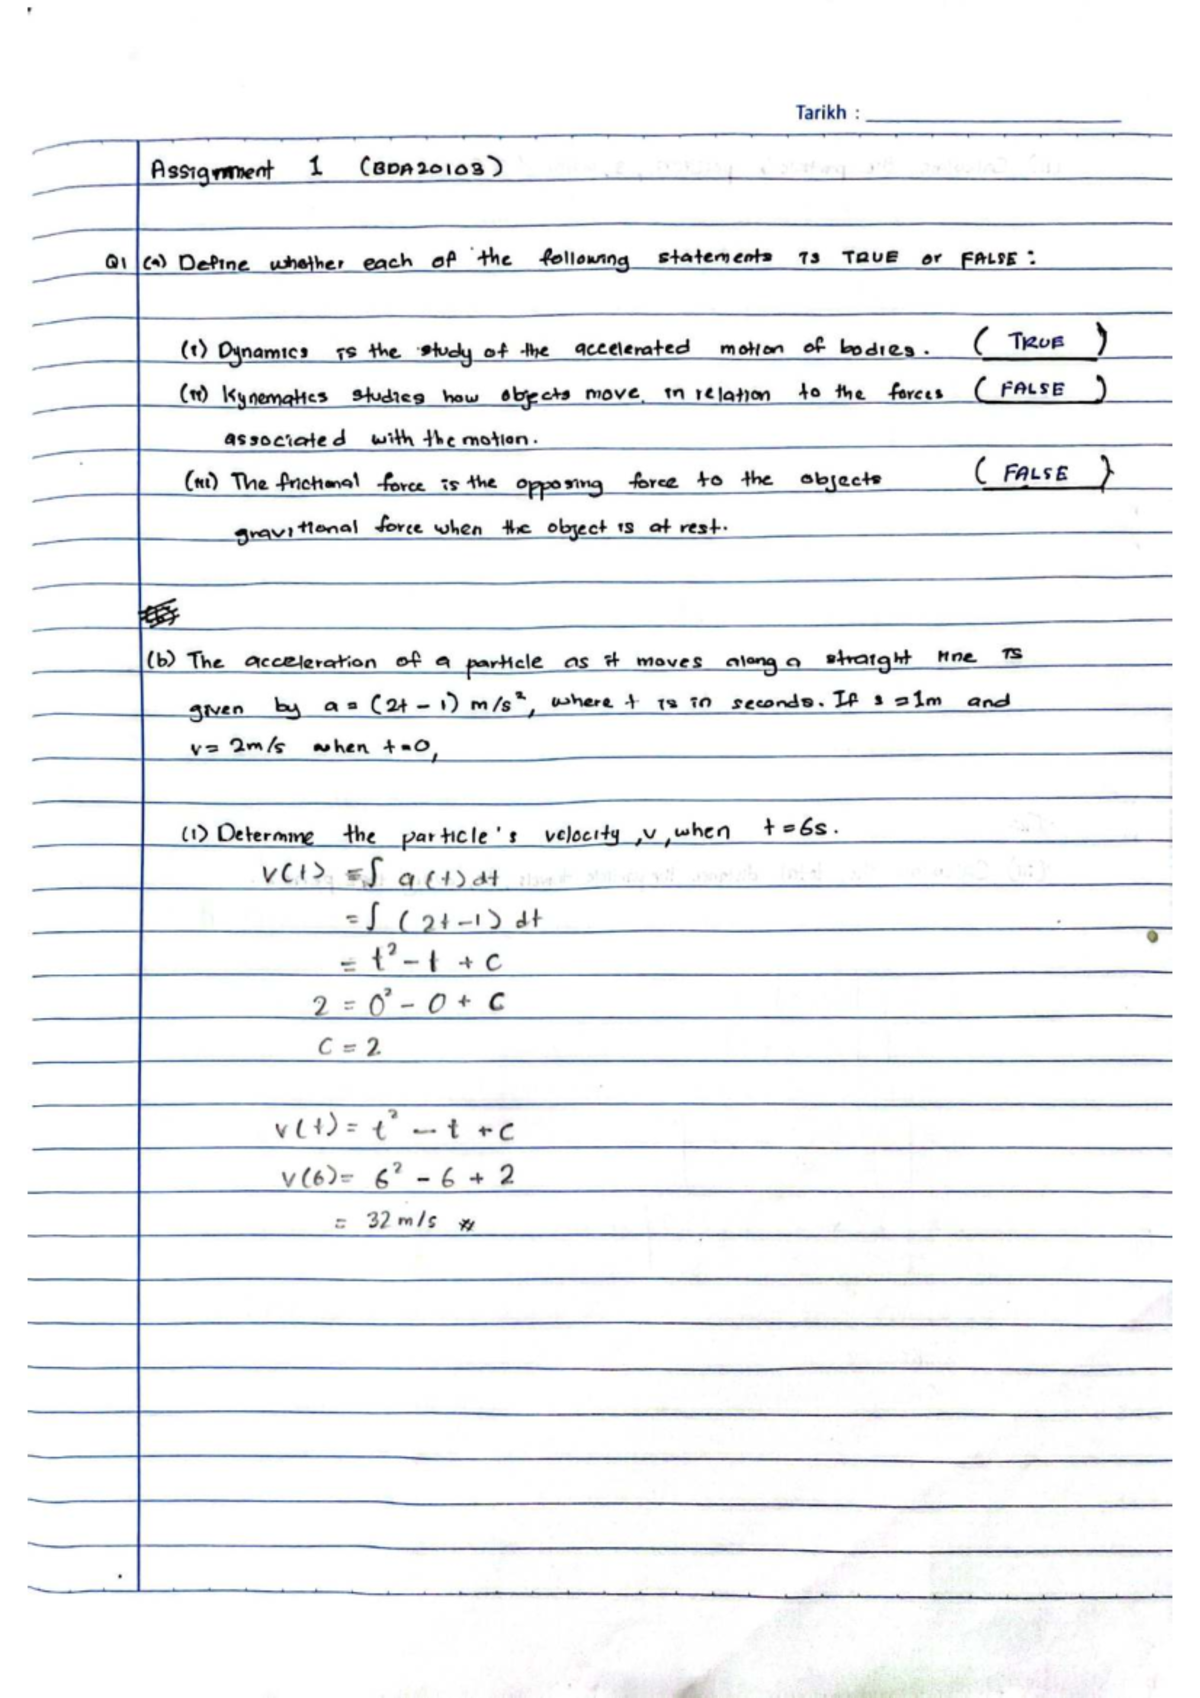 Tarikh :
Assignment 1 (BDA20103)
Q1 (a) Define whether each of the following statements is TRUE or FALSE :
(i) Dynamics is the study of the accelerated motion of bodies. ( TRUE )
(ii) Kynematics studies how objects move in relation to the forces ( FALSE )
associated with the motion.
(iii) The frictional force is the opposing force to the objects ( FALSE )
gravitional force when the object is at rest.
(b) The acceleration of a particle as it moves along a straight line is
given by a = (2t - 1) m/s², where t is in seconds. If s = 1m and
v = 2m/s when t = 0,
(i) Determine the particle's velocity, v, when t = 6s.
v(t) = ∫ a(t) dt
= ∫ (2t - 1) dt
= t² - t + c
2 = 0² - 0 + c
c = 2
v(t) = t² - t + c
v(6) = 6² - 6 + 2
= 32 m/s #